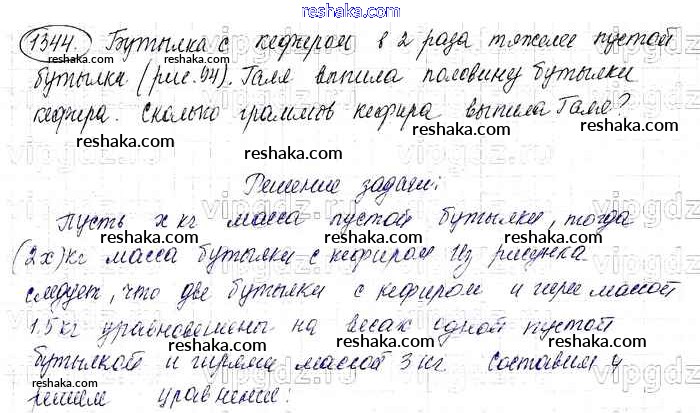 reshaka.com
1344. Бутылка с кефиром в 2 раза тяжелее пустой
бутылки (рис. 94). Галя выпила половину бутылки
reshaka.com reshaka.com reshaka.com
кефира. Сколько граммов кефира выпила Галя?
reshaka.com reshaka.com reshaka.com
vipgdz.ru vipgdz.ru vipgdz
Решение задачи:
Пусть x кг масса пустой бутылки, тогда
reshaka.com reshaka.com reshaka.com
(2x) кг масса бутылки с кефиром Из рисунка
следует, что две бутылки с кефиром и гиря массой
reshaka.com reshaka.com reshaka.com
1.5 кг уравновешены на весах одной пустой
бутылкой и гирями массой 3 кг. Составим и
reshaka.com reshaka.com reshaka.com
решим уравнение: